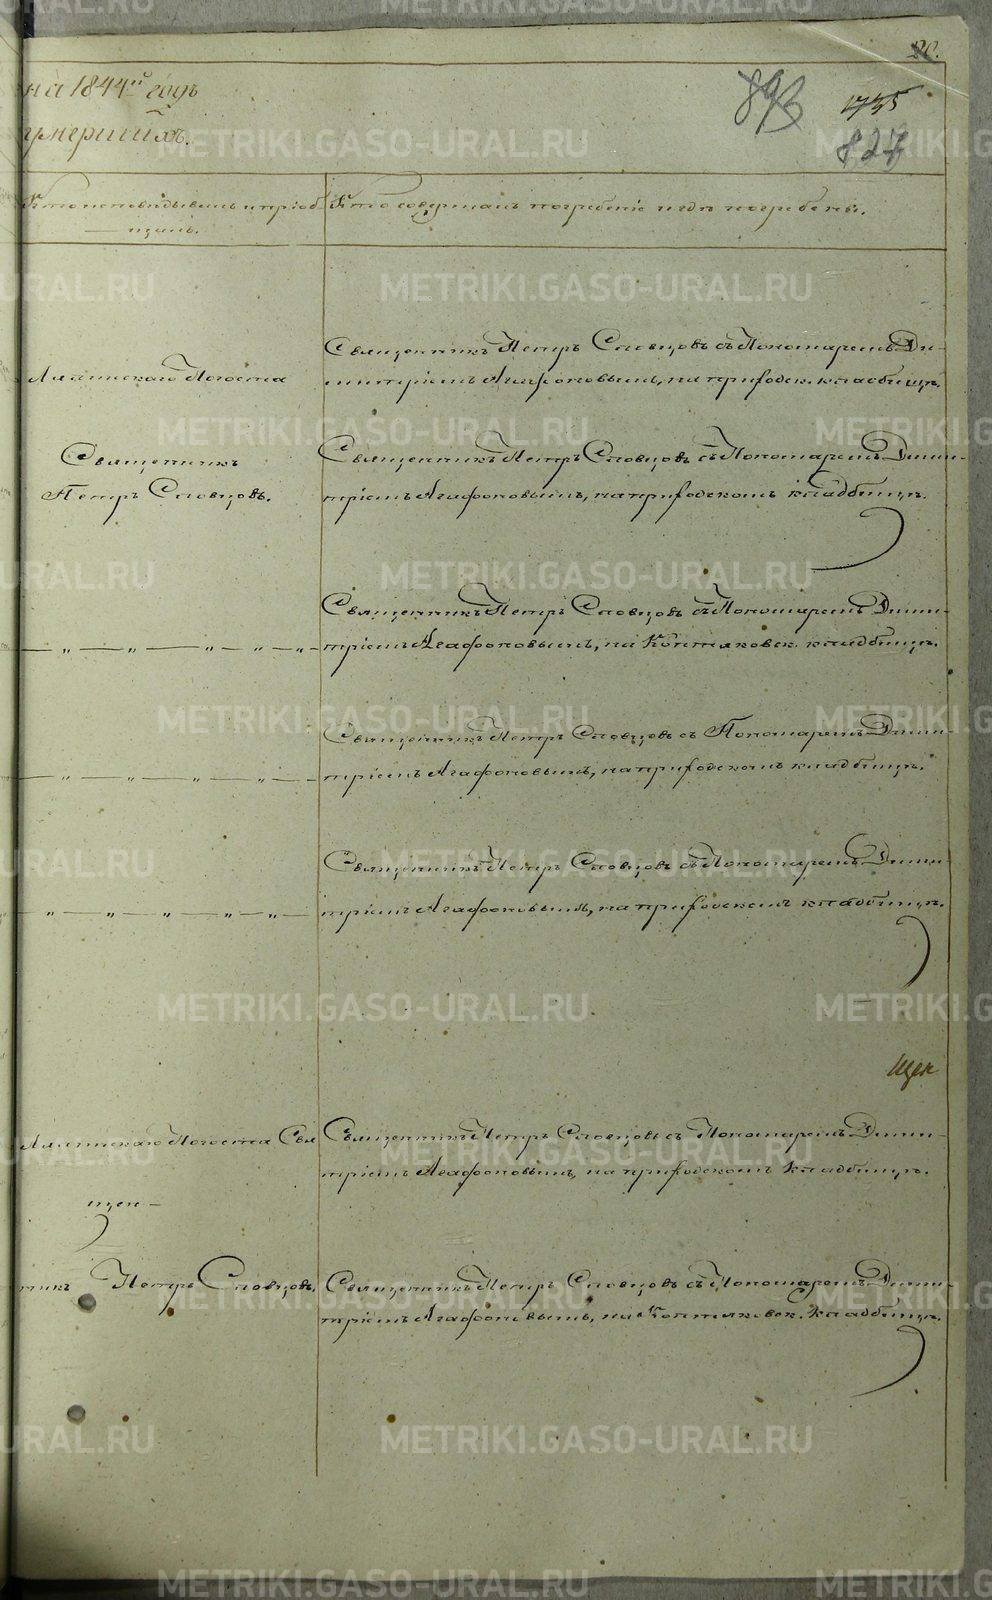 20.
на 1844й годъ
893 1735
умершихъ.
827
Кто исповѣдывалъ и пріоб-
щалъ.
Кто совершалъ погребеніе и гдѣ погребены.
Аятскаго Погоста
Священникъ Петръ Словцовъ съ Пономаремъ Ди-
митріемъ Агафоновымъ, на приходск. кладбищѣ.
Священникъ
Петръ Словцовъ.
Священникъ Петръ Словцовъ съ Пономаремъ Дими-
тріемъ Агафоновымъ, на приходскомъ кладбищѣ.
— „ — „ — „ — „ — „ —
Священникъ Петръ Словцовъ съ Пономаремъ Дими-
тріемъ Агафоновымъ, на Коптяковск. кладбищѣ.
— „ — „ — „ —
Священникъ Петръ Словцовъ съ Пономаремъ Дими-
тріемъ Агафоновымъ, на приходскомъ кладбищѣ.
„ — „ — „ — „ — „ —
Священникъ Петръ Словцовъ съ Пономаремъ Дими-
тріемъ Агафоновымъ, на приходскомъ кладбищѣ.
щен
Аятскаго Погоста Свя
щен-
никъ Петръ Словцовъ.
Священникъ Петръ Словцовъ съ Пономаремъ Дими-
тріемъ Агафоновымъ, на приходскомъ кладбищѣ.
Священникъ Петръ Словцовъ съ Пономаремъ Дими-
тріемъ Агафоновымъ, на Коптяковск. кладбищѣ.
METRIKI.GASO-URAL.RU